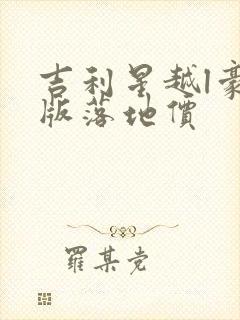 吉利星越l豪
版落地價
羅某党